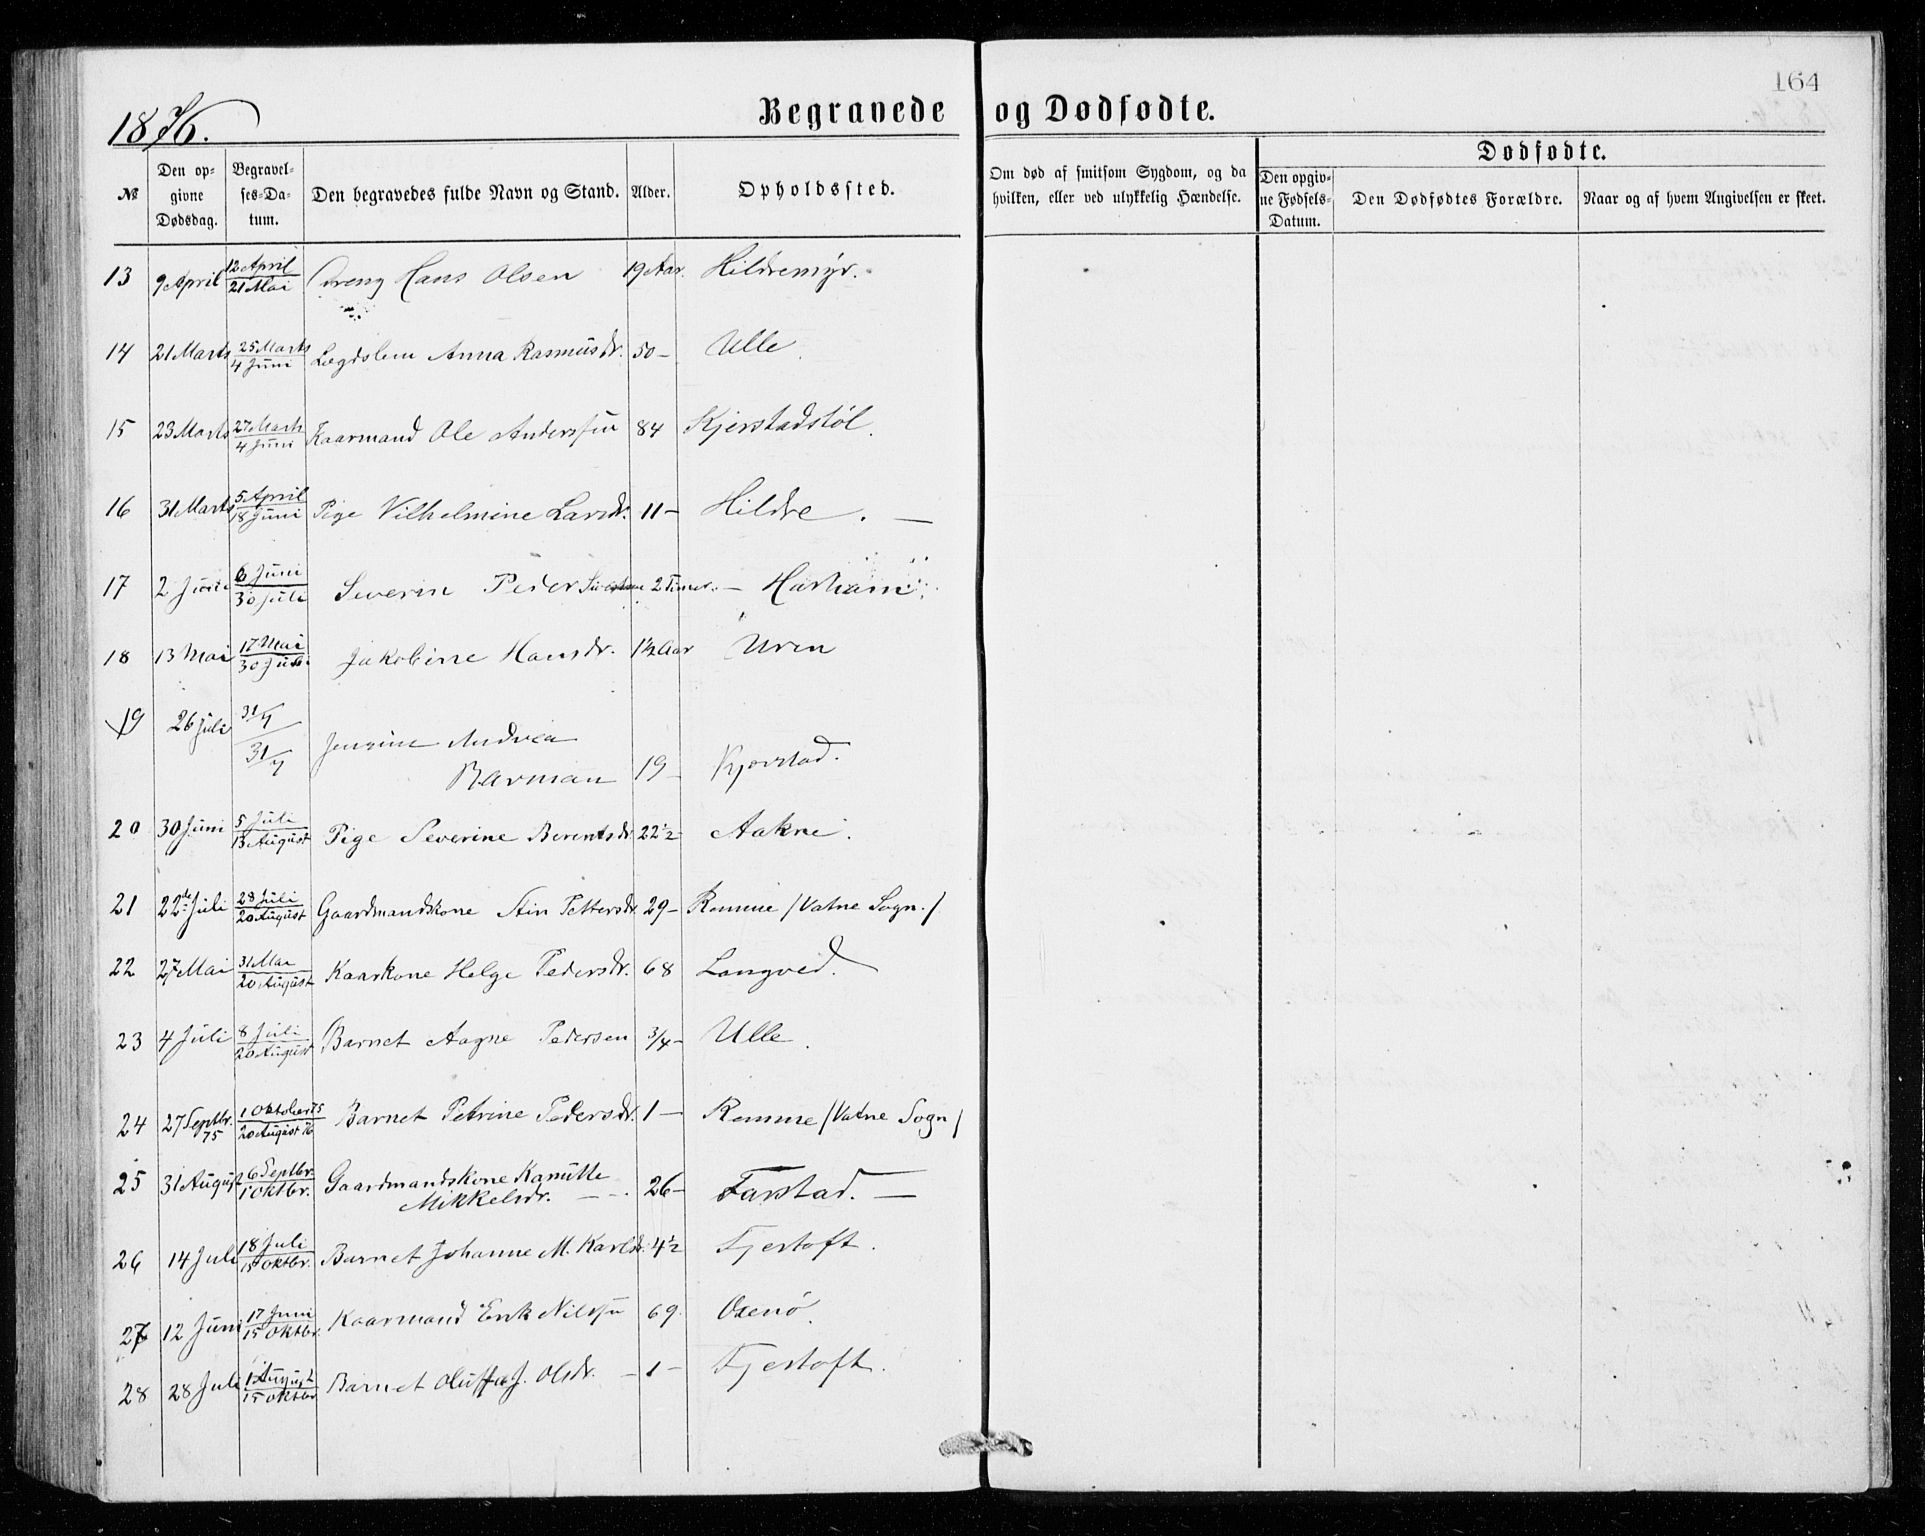 164
1876.
Begravede og Dødfødte.
№
Den opgivne Dødsdag.
Begravelses-Datum.
Den begravedes fulde Navn og Stand.
Alder.
Opholdssted.
Om død af smitsom Sygdom, og da hvilken, eller ved ulykkelig Hændelse.
Dødfødte.
Den opgivne Fødsels-Datum.
Den Dødfødtes Forældre.
Naar og af hvem Angivelsen er skeet.
13 9 April 12 April / 21 Mai Dreng Hans Olsen 19 Aar. Hildremyr.
14 21 Marts 25 Marts / 4 Juni Lægdslem Anna Rasmusdr. 50 – Ulle
15 23 Marts 27 Marts / 4 Juni Kaarmand Ole Andersen 84 Kjerstadstøl.
16 31 Marts 5 April / 18 Juni Pige Vilhelmine Larsdr. 11 – Hildre. –
17 2 Juni 6 Juni / 30 Juli Severin Peder 2 Timer. – Harham
18 13 Mai 17 Mai / 30 Juli Jakobine Hansdr. 1½ Aar Uren
19 26 Juli 31/7 / 31/7 Jensine Andrea
Barman 19 – Kjerstad.
20 30 Juni 5 Juli / 13 August Pige Severine Berentsdr. 22½ Aakre.
21 22de Juli 28 Juli / 20 August Gaardmandskone Stin Pettersdr. 29 – Remme /Vatne Sogn./
22 27 Mai 31 Mai / 20 August Kaarkone Helge Pedersdr. 68 Langved.
23 4 Juli 8 Juli / 20 August Barnet Aagne Pedersen 3/4 – Ulle
24 27 Septbr. 75 1 Oktober 75 / 20 August 76 Barnet Petrine Pedersdr. 1 – Remme /Vatne Sogn/
25 31 August 6 Septbr. / 1 Oktbr. Gaardmandskone Kanutte
Mikkelsdr. – – 26 – Farstad. –
26 14 Juli 18 Juli / 15 Oktbr. Barnet Johanne M. Karlsdr. 4½ Fjertoft.
27 12 Juni 17 Juni / 15 Oktbr. Kaarmand Erik Nilssen 69. Oxenø.
28 28 Juli 1 August / 15 Oktbr Barnet Oluffa J. Olsdr. – 1 – Fjertoft.